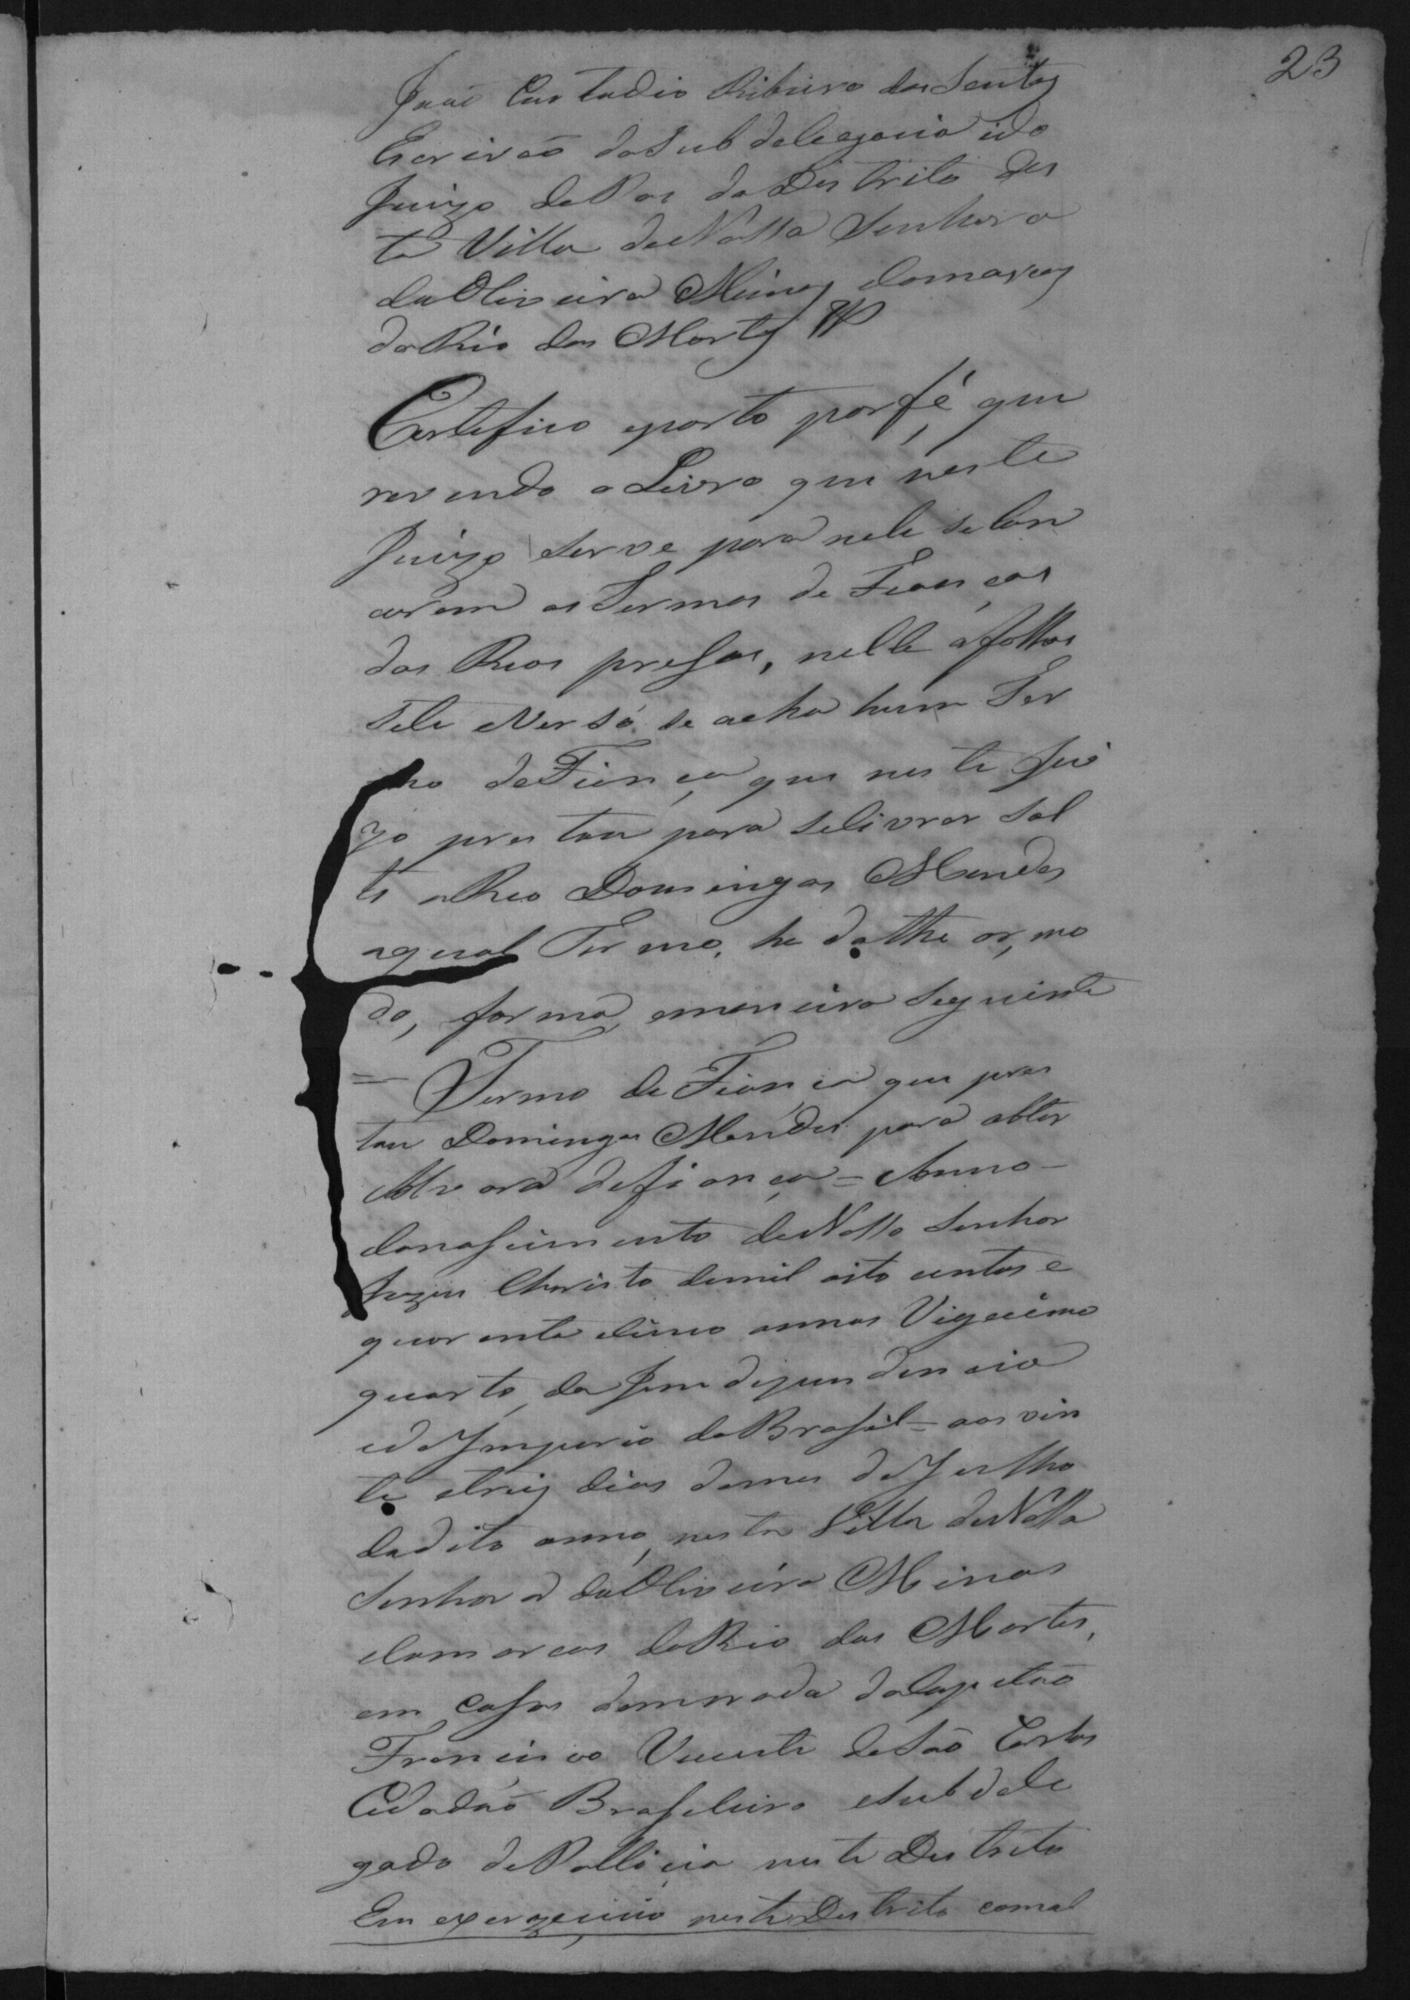 23
João Custodio Ribeiro dos Santos
Escrivão da Subdelegacia ido
Juizo de Pas do Destrito des
ta Villa de Nossa Senhora
da Oliveira Minas Comarca
do Rio das Mortes
Certefico eporto por fé, que
revendo o Livro que neste
Juizo serve para nele se lan
carem os Termos de Fianças
dos Reos presos, nelle afolhas
sete Verso se acha hum Ter
mo de Fiança que neste Jui
zo prestou para selivrar sol
to o Reo Domingos Mendes
oqual Termo, he do theor, mo
do, forma, emaneira Seguinte
= Termo de Fiança que pres
tou Domingos Mendes para obter
Alvara defiança = Anno
donascimento de Nosso Senhor
Jezus Christo demil oito centos e
quarenta e cinco annos Vigecimo
quarto, da Indipendencia
edo Imperio do Brasil = aos vin
te etres dias domes de Julho
dodito anno, nesta Villa de Nossa
Senhora da Oliveira Minas
Comarca do Rio das Mortes,
em casas demorada do Capitão
Francisco Vicente de São Carlos
Cidadão Brasileiro eSubdele
gado de Pollicia neste Destrito
Em exerzecicio, neste Destrito comal